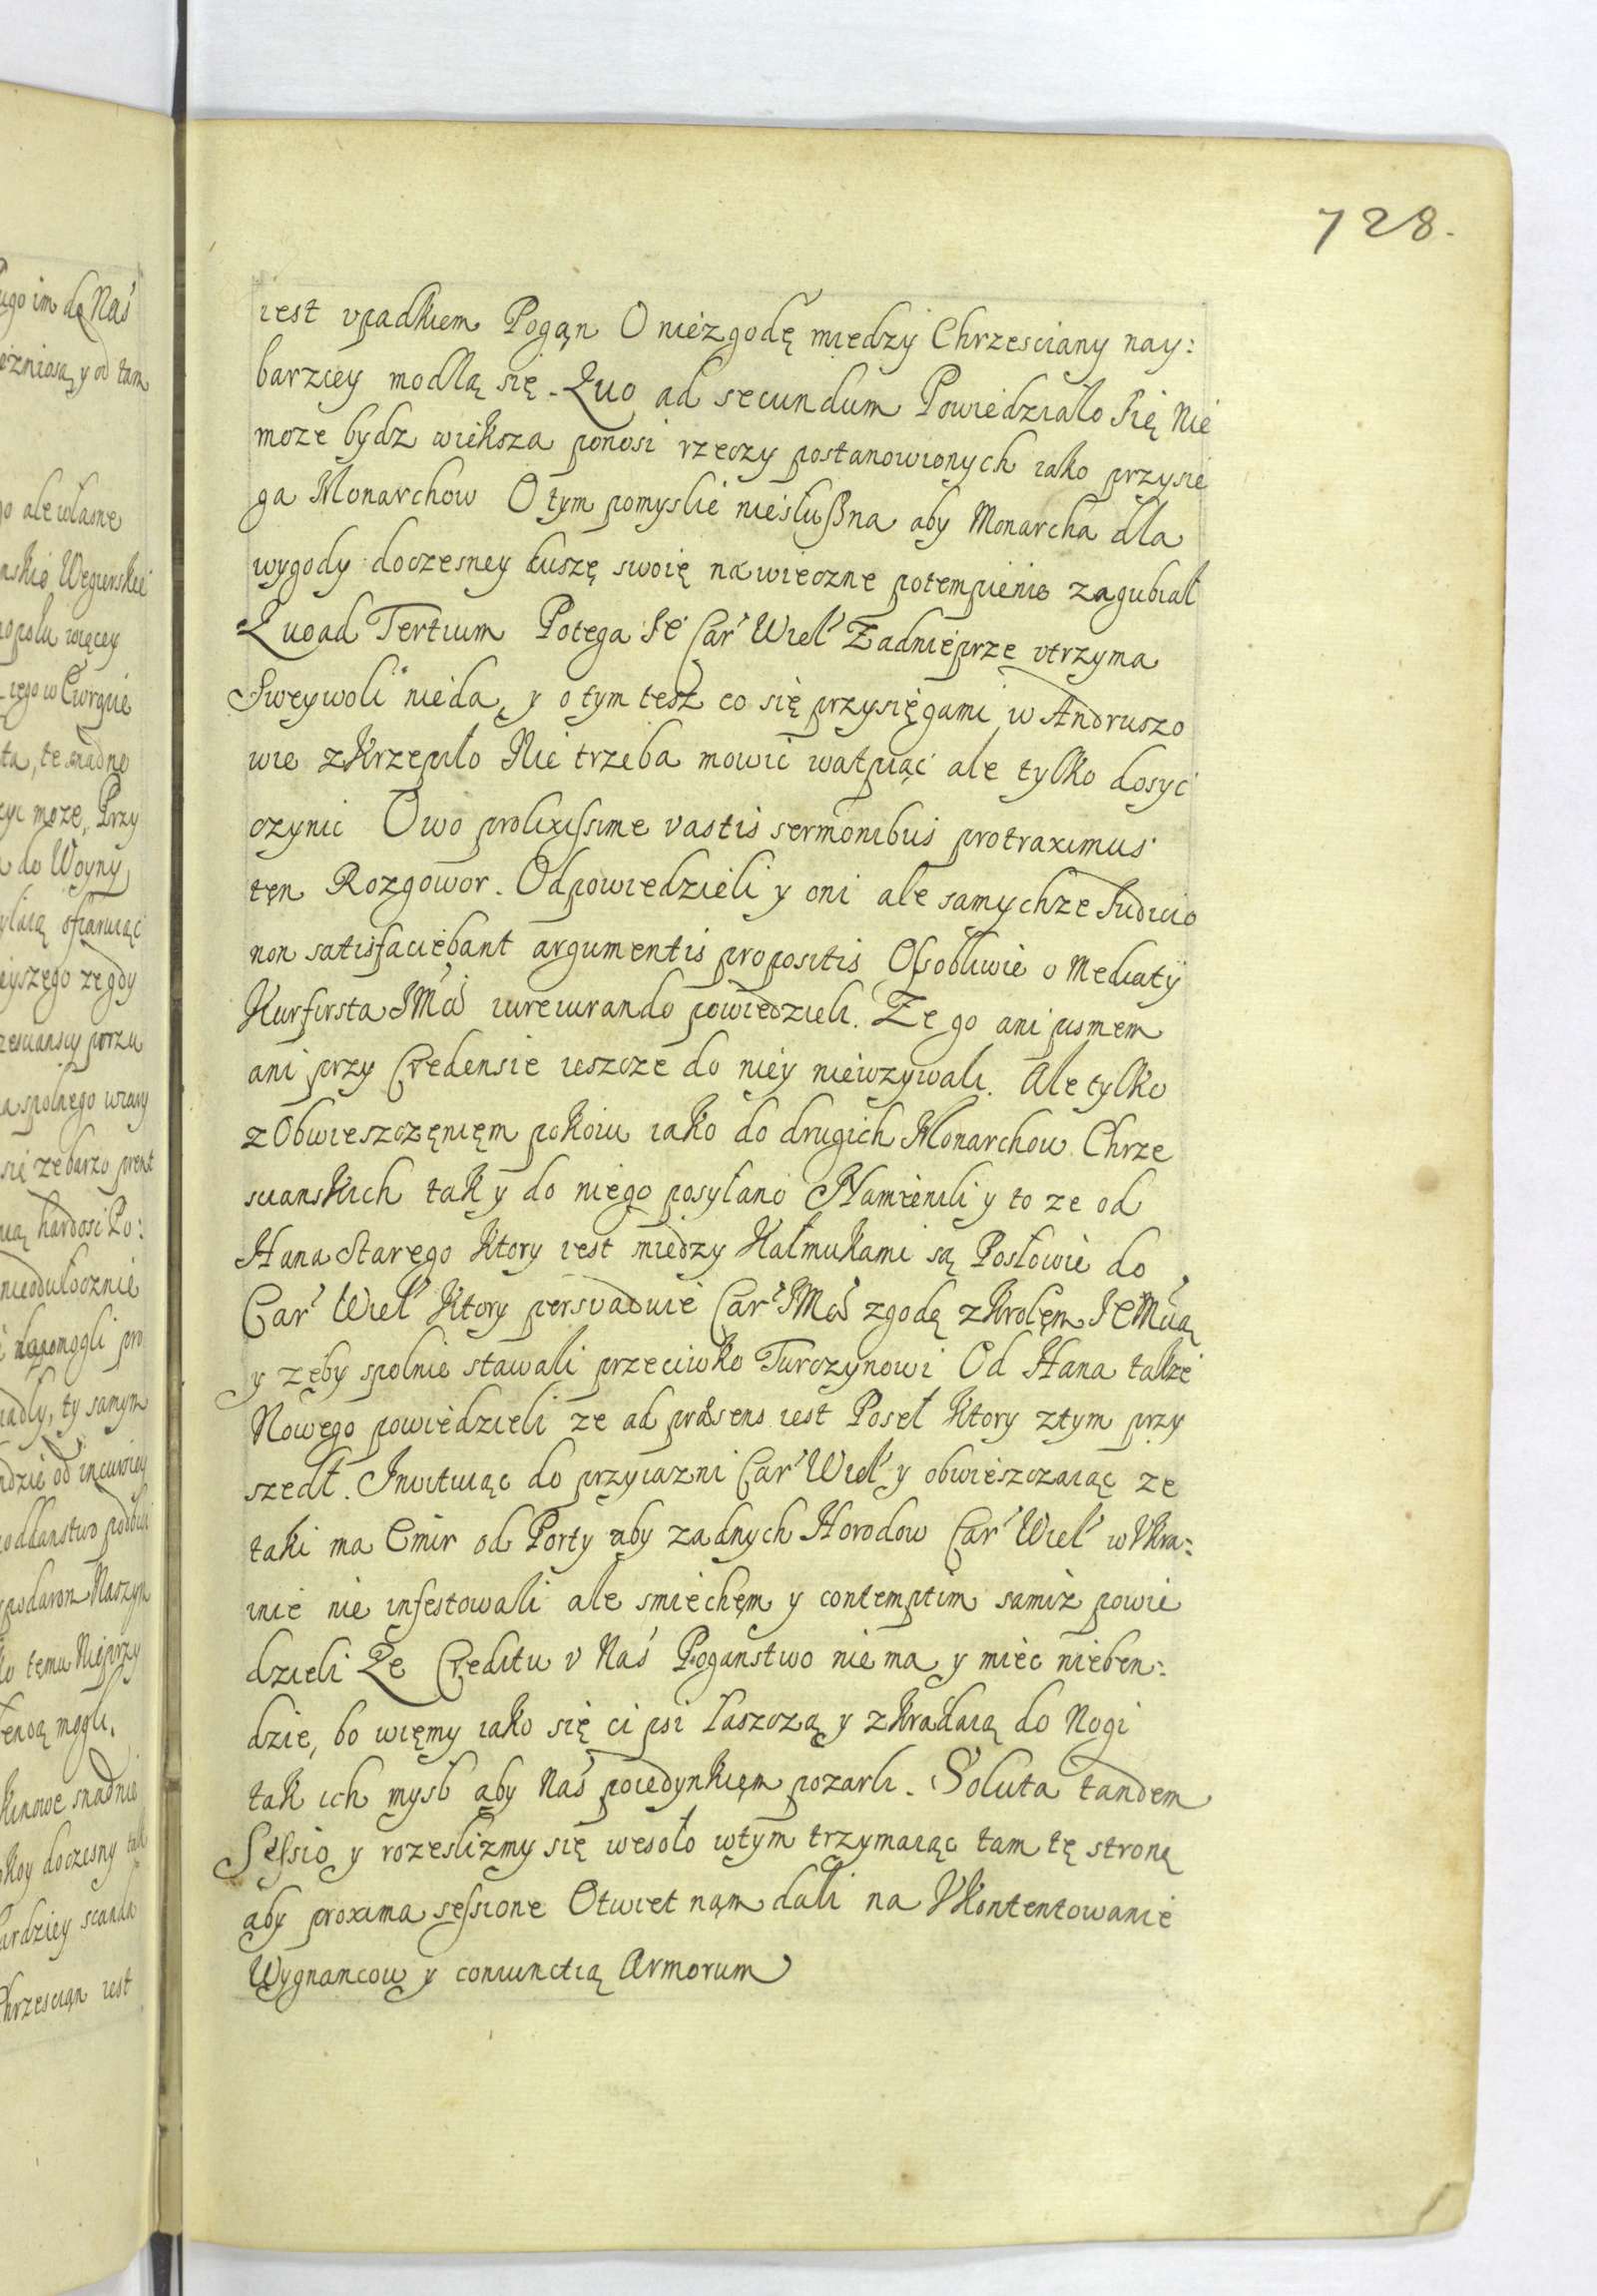 728.
iest vpadkiem Pogąn O niezgodę miedzy Chrzesciany nay:
barziey modlą się. Quo ad secundum Powiedziało się Nie
moze bydz wieksza ponosi rzeczy postanowionych iako przysie
ga Monarchow O tym pomyslic niesłuszna aby Monarcha dla
wygody doczesney duszę swoię na wieczne potempienie zagubiał
Quoad Tertium Potega Je Car Wiel Zadnieprze vtrzyma
Sweywoli nieda, y o tym tesz co się przysięgami w Andruszo
wie zkrzepiło Nie trzeba mowić watpiąć ale tylko dosyć
czynic Owo prolixissime vastis sermonibus protraximus
tęn Rozgowor. Odpowiedzieli y oni ale samychze Judicio
non satisfaciebant argumentis propositis Osobliwie o Mediaty
Kurfirsta JMci iureiurando powiedzieli. Ze go ani pismem
ani przy Credensie ieszcze do niey niewzywali. Ale tylko
z Obwieszczęnięm pokoiu iako do drugich Monarchow Chrze
scianskich tak y do niego posyłano Namienili y to ze od
Hana Starego ktory iest miedzy Kałmukami są Posłowie do
Car Wiel ktory persvaduie Car JMci zgodą z Krolęm JEMcią
y zęby spolnie stawali przeciwko Turczynowi Od Hana takze
Nowego powiedzieli ze ad præsens iest Poseł ktory z tym przy
szedł. Invituiąc do przyiazni Car Wiel y obwieszczaiąc ze
taki ma Emir od Porty aby zadnych Horodow Car Wiel w Vkra:
inie nie infestowali ale smiechęm y contemptim samiz powie
dzieli Ze Creditu v Nas Poganstwo nie ma y miec nieben:
dzie, bo więmy iako się ci psi łaszczą y zkradaią do Nogi
tak ich mysl aby Nas poiedynkięm pozarli. Soluta tandem
Sessio y rozeslizmy się wesoło wtym trzymaiąc tam tę stronę
aby proxima sessione Otwiet nąm dali na Vkontentowanie
Wygnancow y coniunctią Armorum